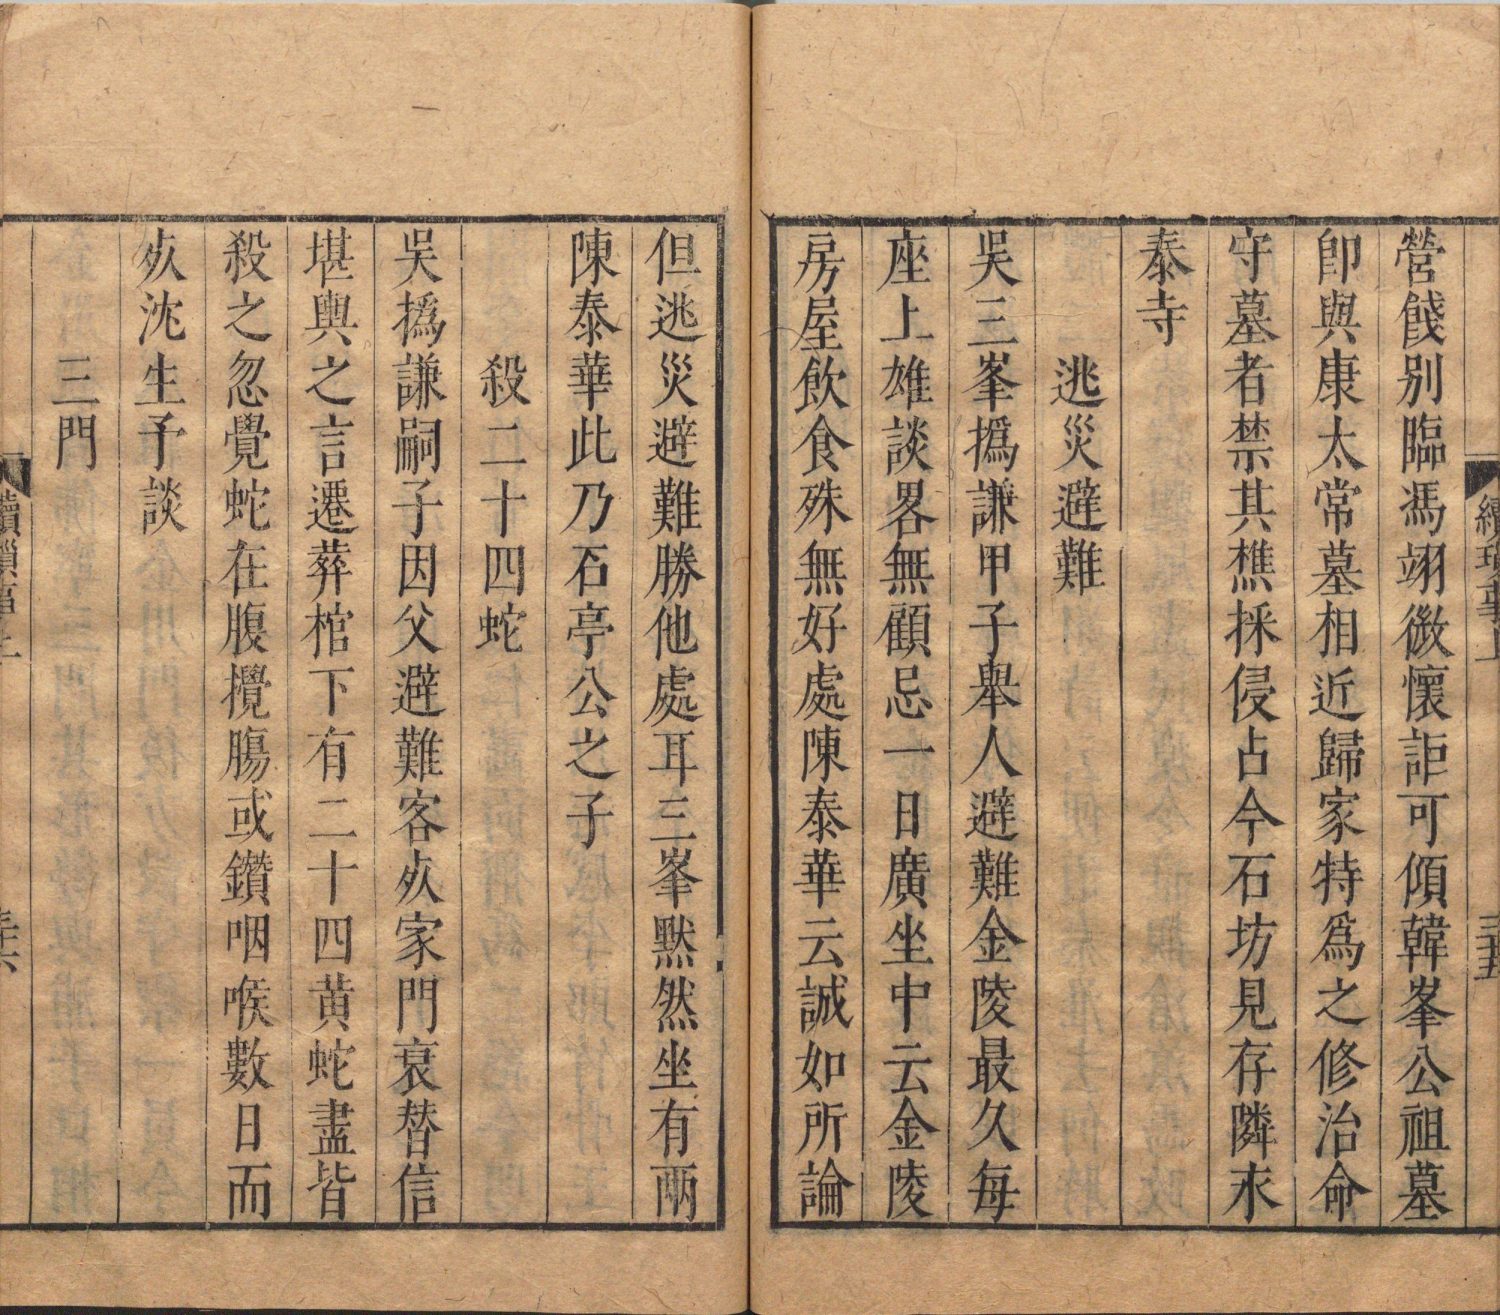 續瑣事上
三十五
營餞別臨馮翊徽懷詎可傾韓峯公祖墓
卽與康太常墓相近歸家特爲之修治命
守墓者禁其樵採侵占今石坊見存隣永
泰寺
逃災避難
吳三峯撝謙甲子舉人避難金陵最久每
座上雄談畧無顧忌一日廣坐中云金陵
房屋飲食殊無好處陳泰華云誠如所論
但逃災避難勝他處耳三峯默然坐有兩
陳泰華此乃石亭公之子
殺二十四蛇
吳撝謙嗣子因父避難客㱙家門衰替信
堪輿之言遷葬棺下有二十四黄蛇盡皆
殺之忽覺蛇在腹攪腸或鑽咽喉數日而
㱙沈生予談
三門
續瑣事上
三十六